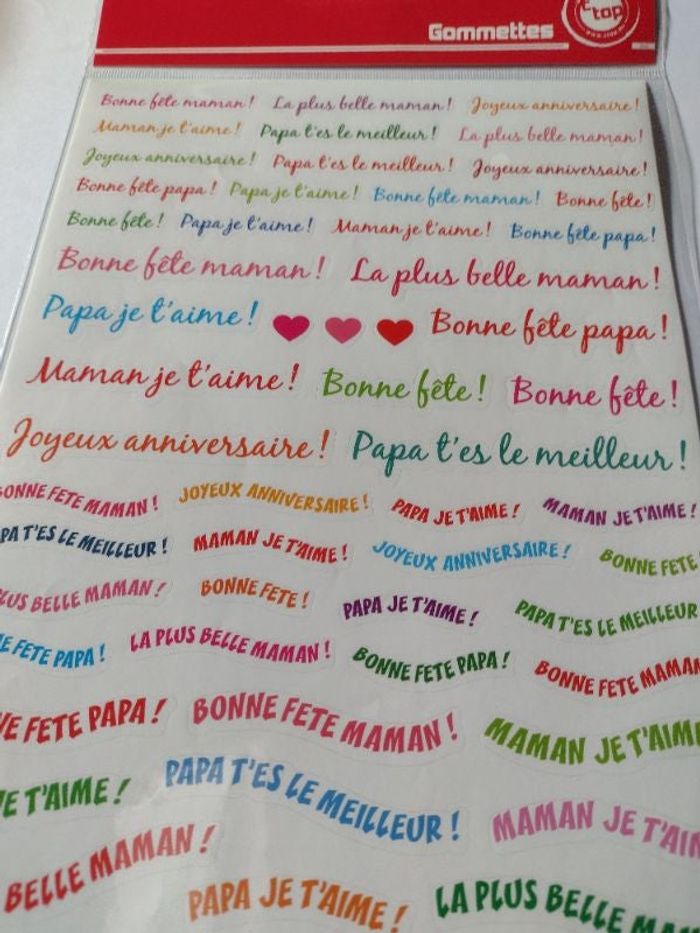 top
Gommettes
Bonne fête maman ! La plus belle maman ! Joyeux anniversaire !
Maman je t'aime ! Papa t'es le meilleur ! La plus belle maman !
Joyeux anniversaire ! Papa t'es le meilleur ! Joyeux anniversaire !
Bonne fête papa ! Papa je t'aime ! Bonne fête maman ! Bonne fête !
Bonne fête ! Papa je t'aime ! Maman je t'aime ! Bonne fête papa !
Bonne fête maman ! La plus belle maman !
Papa je t'aime ! Bonne fête papa !
Maman je t'aime ! Bonne fête ! Bonne fête !
Joyeux anniversaire ! Papa t'es le meilleur !
ONNE FETE MAMAN ! JOYEUX ANNIVERSAIRE ! PAPA JE T'AIME ! MAMAN JE T'AIME !
PA T'ES LE MEILLEUR ! MAMAN JE T'AIME ! JOYEUX ANNIVERSAIRE ! BONNE FETE
LUS BELLE MAMAN ! BONNE FETE ! PAPA JE T'AIME ! PAPA T'ES LE MEILLEUR
E FETE PAPA ! LA PLUS BELLE MAMAN ! BONNE FETE PAPA ! BONNE FETE MAMAN
NE FETE PAPA ! BONNE FETE MAMAN ! MAMAN JE T'AIME
E T'AIME ! PAPA T'ES LE MEILLEUR ! MAMAN JE T'AIM
BELLE MAMAN ! PAPA JE T'AIME ! LA PLUS BELLE MAM